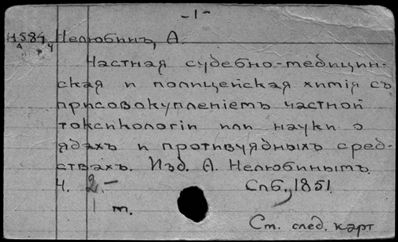 -1-
Нелюбинъ, А.
Частная судебно-медицин-
ская и полицейская химія съ
присовокупленіемъ частной
токсикологіи или науки о
ядахъ и противуядныхъ сред-
ствахъ. Изд. А. Нелюбинымъ.
Ч. 2.- Спб., 1851.
1 т.
Ст. след. карт